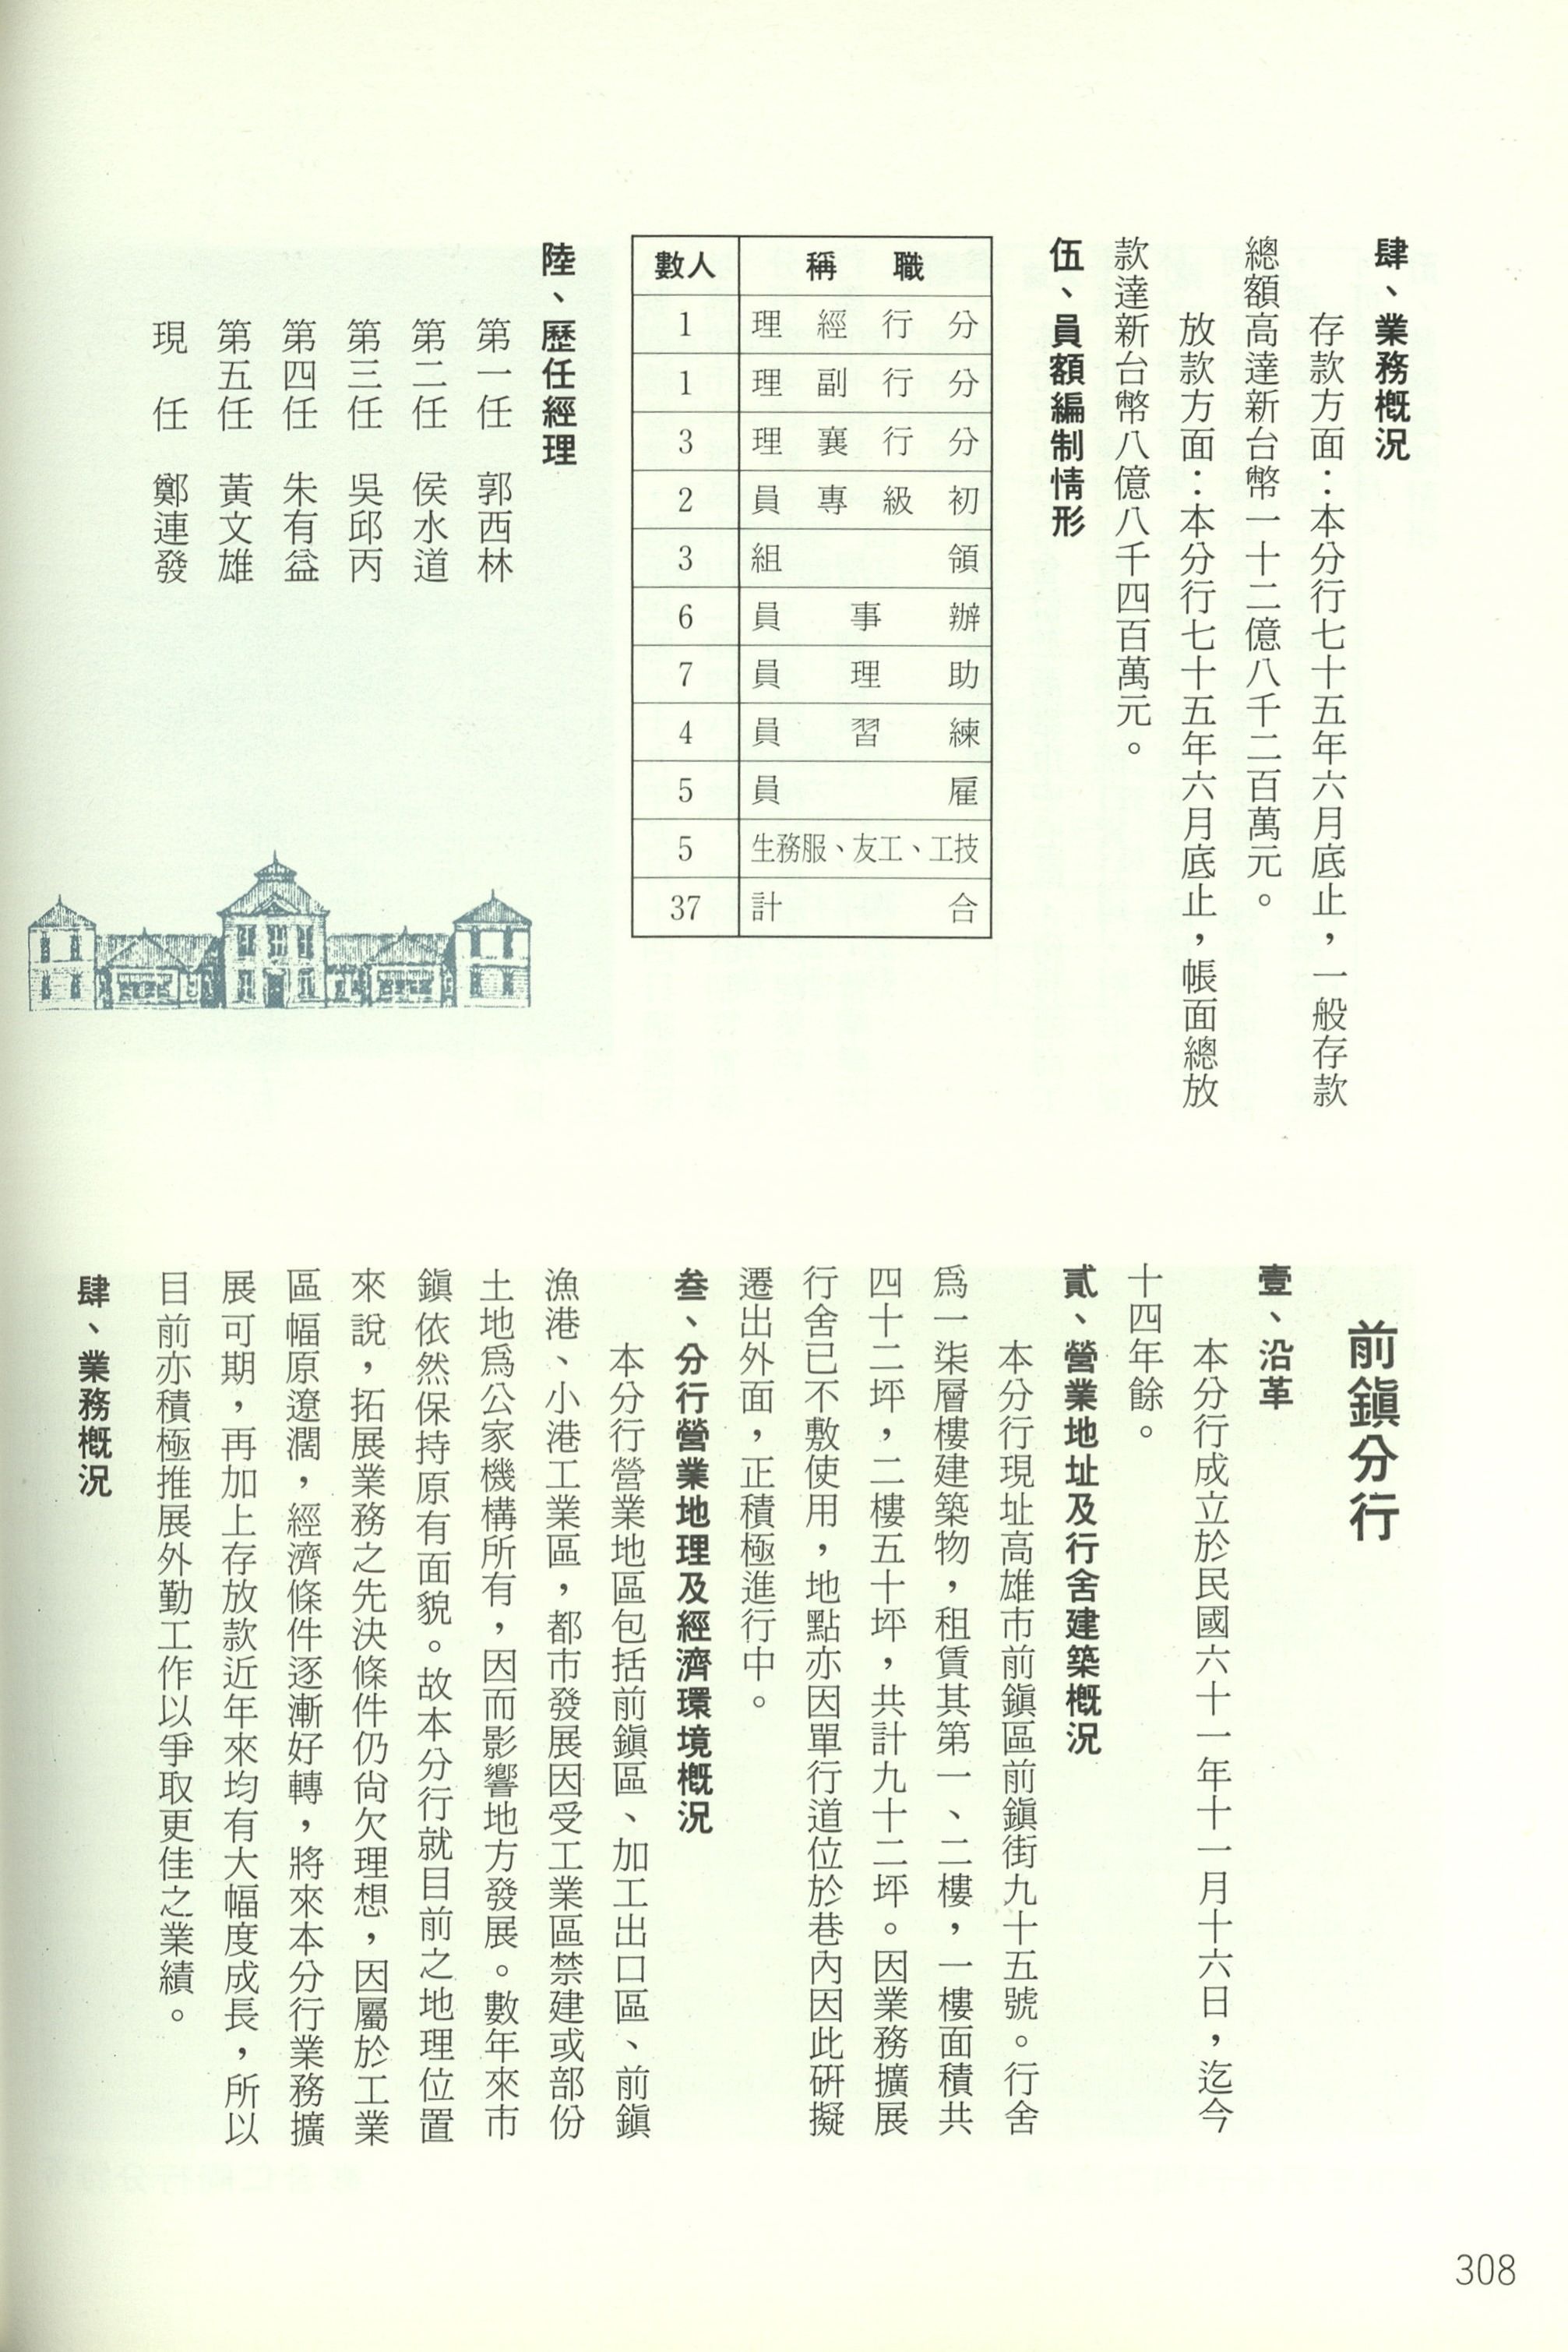 肆、業務概況
存款方面：本分行七十五年六月底止，一般存款
總額高達新台幣一十二億八千二百萬元。
放款方面：本分行七十五年六月底止，帳面總放
款達新台幣八億八千四百萬元。
伍、員額編制情形
職稱 人數
分行經理 1
分行副理 1
分行襄理 3
初級專員 2
領組 3
辦事員 6
助理員 7
練習員 4
雇員 5
技工、工友、服務生 5
合計 37
陸、歷任經理
第一任 郭西林
第二任 侯水道
第三任 吳邱丙
第四任 朱有益
第五任 黃文雄
現任 鄭連發
前鎭分行
壹、沿革
本分行成立於民國六十一年十一月十六日，迄今
十四年餘。
貳、營業地址及行舍建築概況
本分行現址高雄市前鎭區前鎭街九十五號。行舍
爲一柒層樓建築物，租賃其第一、二樓，一樓面積共
四十二坪，二樓五十坪，共計九十二坪。因業務擴展
行舍已不敷使用，地點亦因單行道位於巷內因此硏擬
遷出外面，正積極進行中。
叁、分行營業地理及經濟環境概況
本分行營業地區包括前鎭區、加工出口區、前鎭
漁港、小港工業區，都市發展因受工業區禁建或部份
土地爲公家機構所有，因而影響地方發展。數年來市
鎭依然保持原有面貌。故本分行就目前之地理位置
來說，拓展業務之先決條件仍尙欠理想，因屬於工業
區幅原遼濶，經濟條件逐漸好轉，將來本分行業務擴
展可期，再加上存放款近年來均有大幅度成長，所以
目前亦積極推展外勤工作以爭取更佳之業績。
肆、業務概況
308